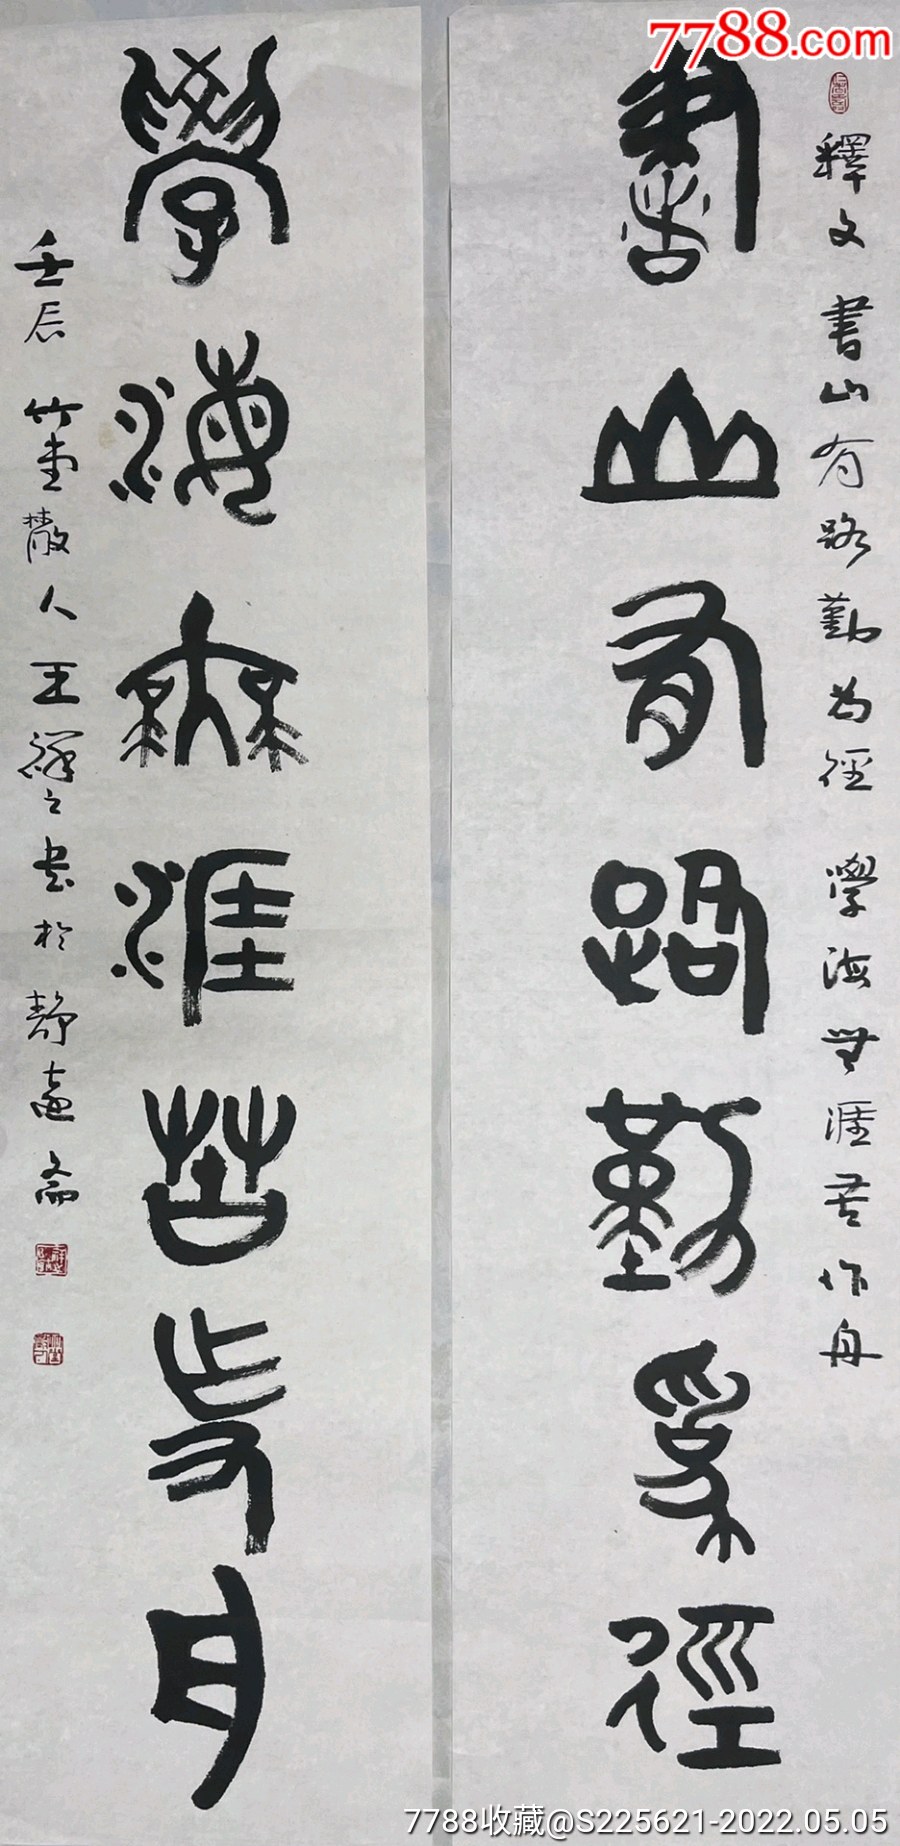 7788.com
釋文 書山有路勤為徑 學海無涯苦作舟
書山有路勤為徑
學海無涯苦作舟
壬辰 竹堂散人王繹之書於靜遠齋
7788收藏@S225621-2022.05.05